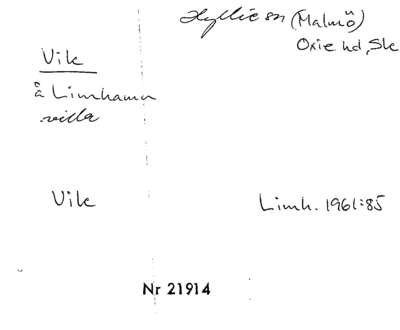 Hyllie sn (Malmö)
Oxie hd, Sk
Vik
å Limhamn
villa
Vik
Limh. 1961:85
Nr 21914